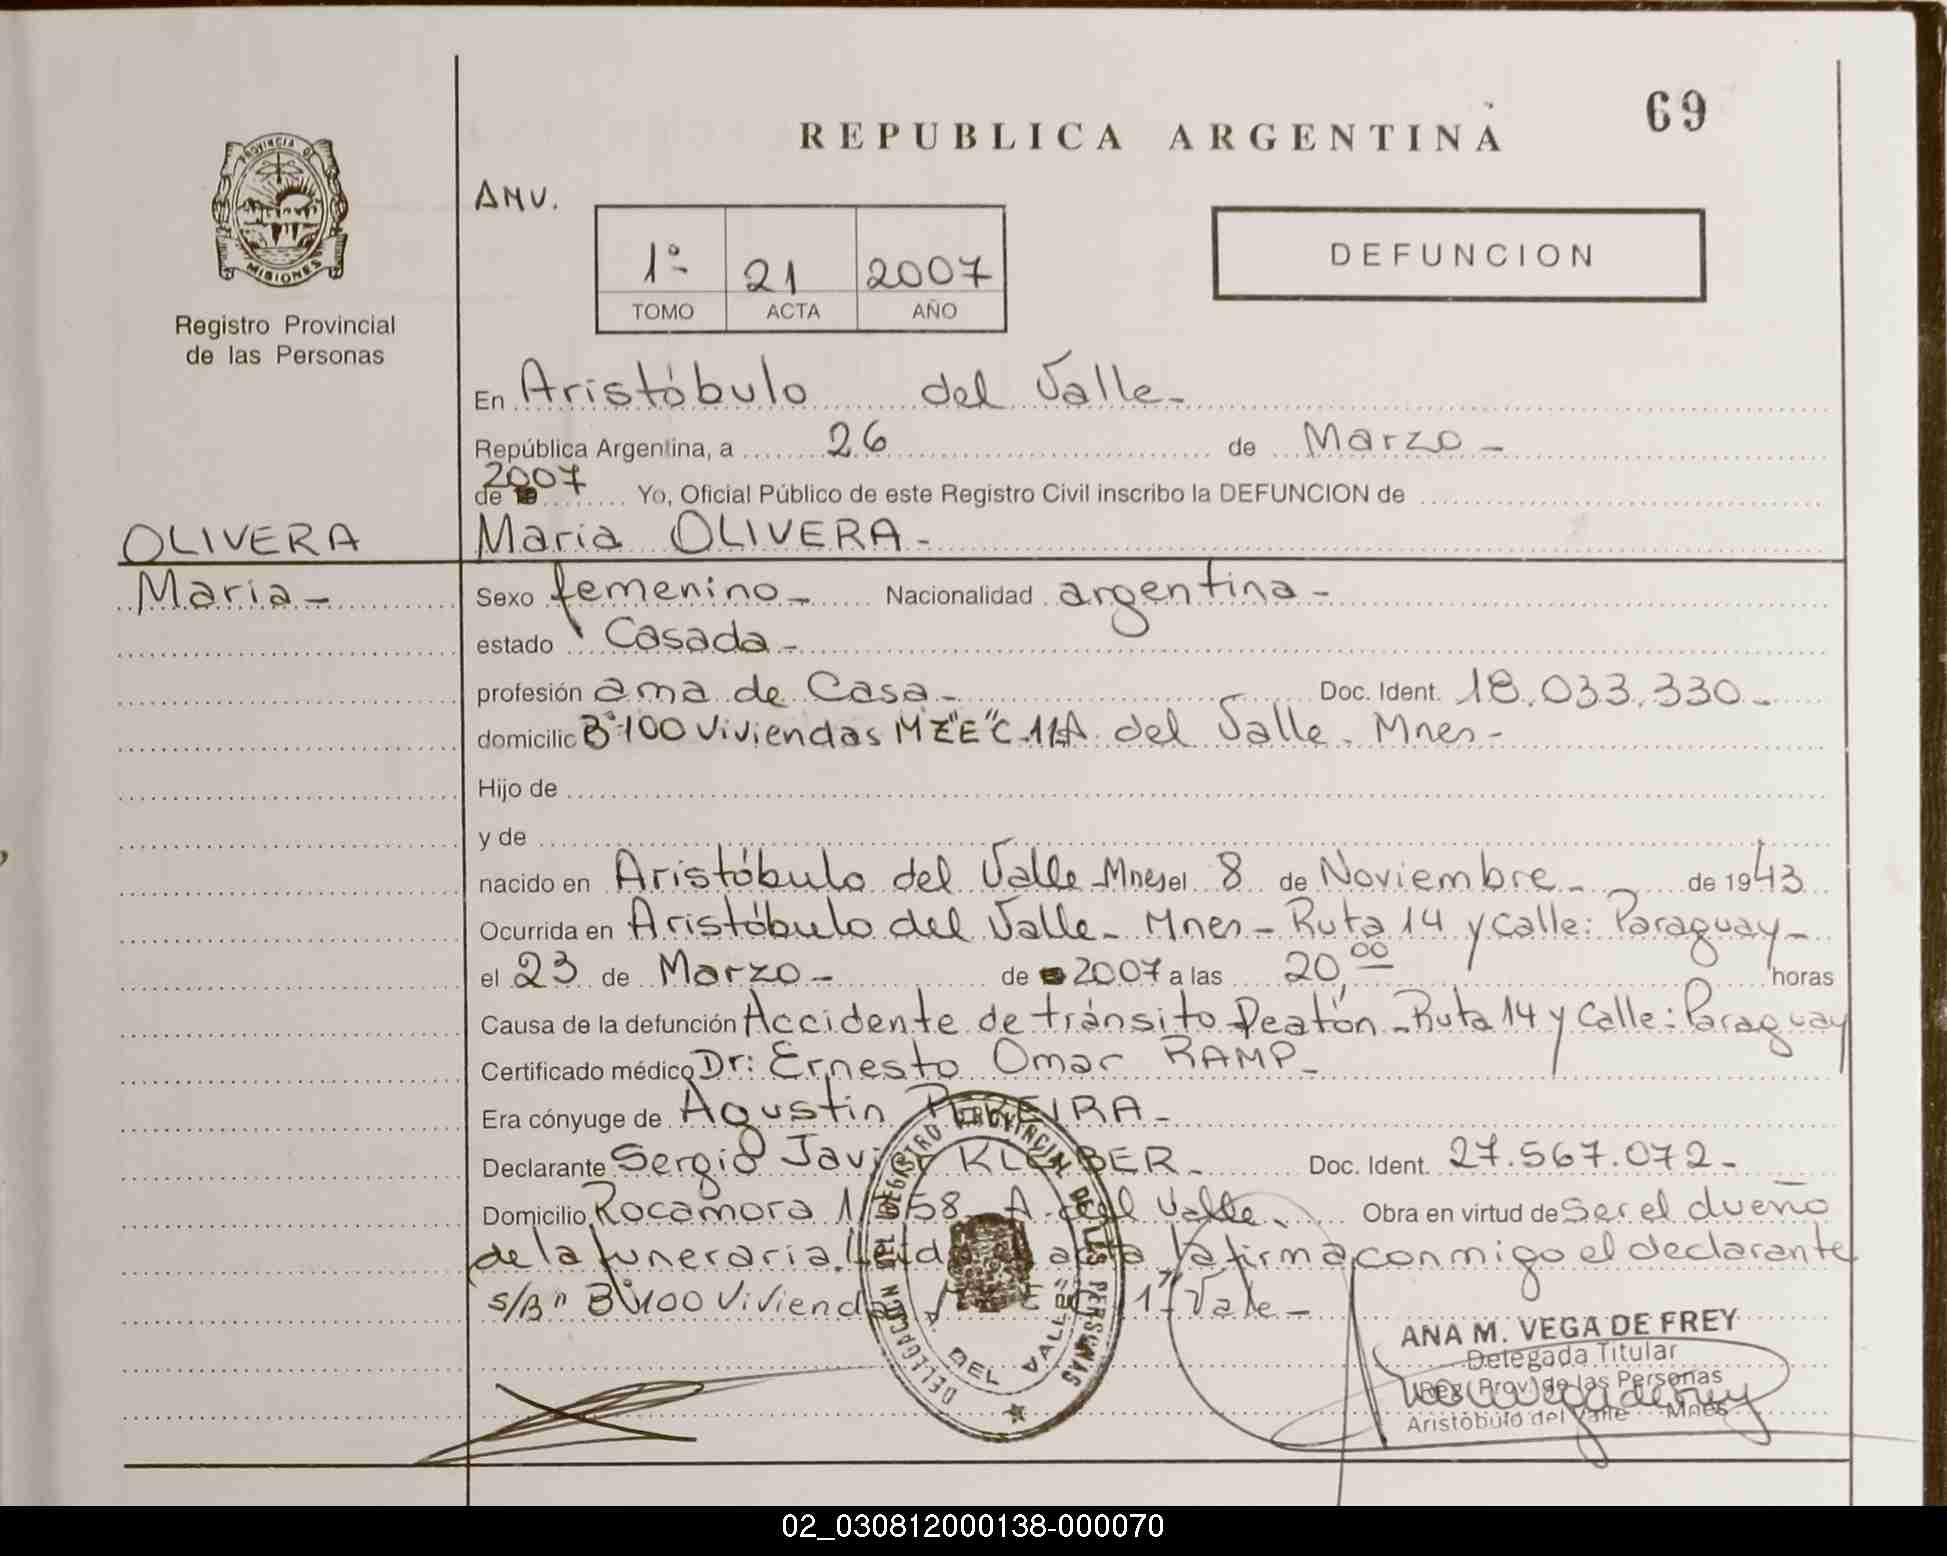 69
REPUBLICA ARGENTINA
PROVINCIA DE
MISIONES
Registro Provincial
de las Personas
ANV.
1º 21 2007
TOMO ACTA AÑO
DEFUNCION
En Aristóbulo del Valle-
República Argentina, a 26 de Marzo-
de 2007 Yo, Oficial Público de este Registro Civil inscribo la DEFUNCION de
OLIVERA Maria OLIVERA-
Maria- Sexo femenino- Nacionalidad argentina-
estado Casada-
profesión ama de Casa- Doc. Ident. 18.033.330-
domicilio Bº 100 Viviendas MZ"E"C.11A. del Valle. Mnes-
Hijo de
y de
nacido en Aristóbulo del Valle-Mnes el 8 de Noviembre- de 1943
Ocurrida en Aristóbulo del Valle- Mnes- Ruta 14 y calle: Paraguay-
el 23 de Marzo- de 2007 a las 20 00 horas
Causa de la defunción Accidente de tránsito Peatón-Ruta 14 y Calle: Paraguay
Certificado médico Dr: Ernesto Omar RAMP-
Era cónyuge de Agustin
Declarante Sergio Javier Doc. Ident. 27.567.072-
Domicilio Rocamora A. del Valle. Obra en virtud de Ser el dueño
de la funeraria. Leida el acta la firma conmigo el declarante
s/Bº Bº 100 Vivienda Vale-
DELEGACION DEL REGISTRO PROVINCIAL DE LAS PERSONAS
DEL VALLE
ANA M. VEGA DE FREY
Delegada Titular
Reg. Prov. de las Personas
Aristóbulo del Valle Mnes
02_030812000138-000070